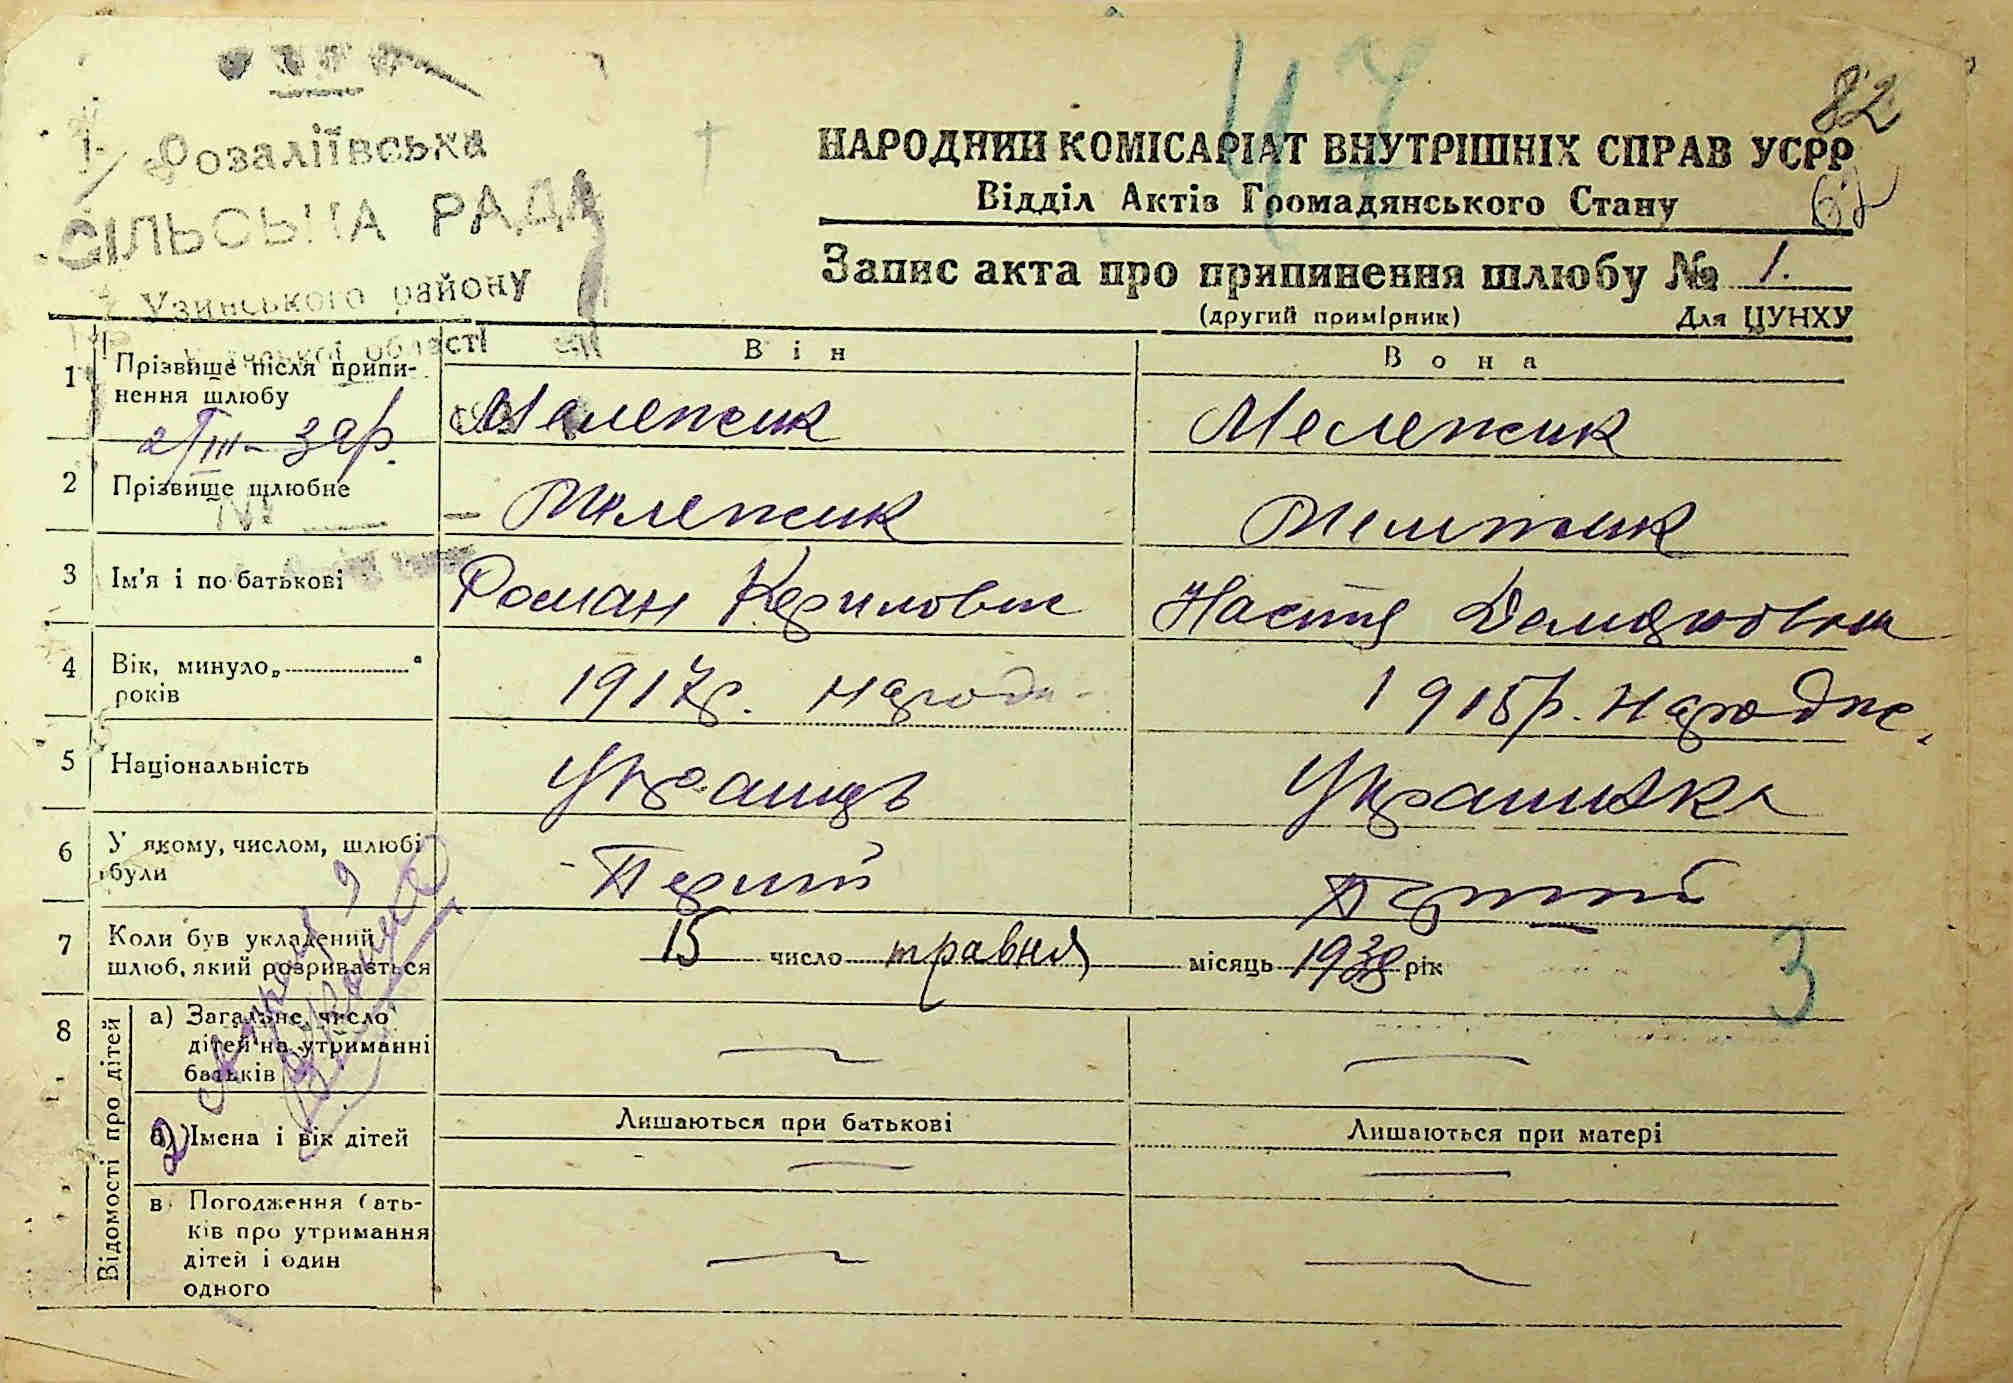 47
82
62
Розаліївська
СІЛЬСЬКА РАДА
Узинського району
НАРОДНИЙ КОМІСАРІАТ ВНУТРІШНІХ СПРАВ УСРР
Відділ Актів Громадянського Стану
Запис акта про припинення шлюбу № 1.
(другий примірник) Для ЦУНХУ
Він Вона
1 Прізвище після припинення шлюбу Мележик Мележик
2 Прізвище шлюбне Мележик Мележик
3 Ім'я і по батькові Роман Кирилович Настя Демидовна
4 Вік, минуло „ “ років 1917р. народ 1915р. народже
5 Національність Українець Українка
6 У якому, числом, шлюбі були Перший Перший
7 Коли був укладений шлюб, який розривається 15 число травня місяць рік
3
8 Відомості про дітей
а) Загальне число дітей на утриманні батьків
б) Імена і вік дітей Лишаються при батькові Лишаються при матері
в Погодження батьків про утримання дітей і один одного